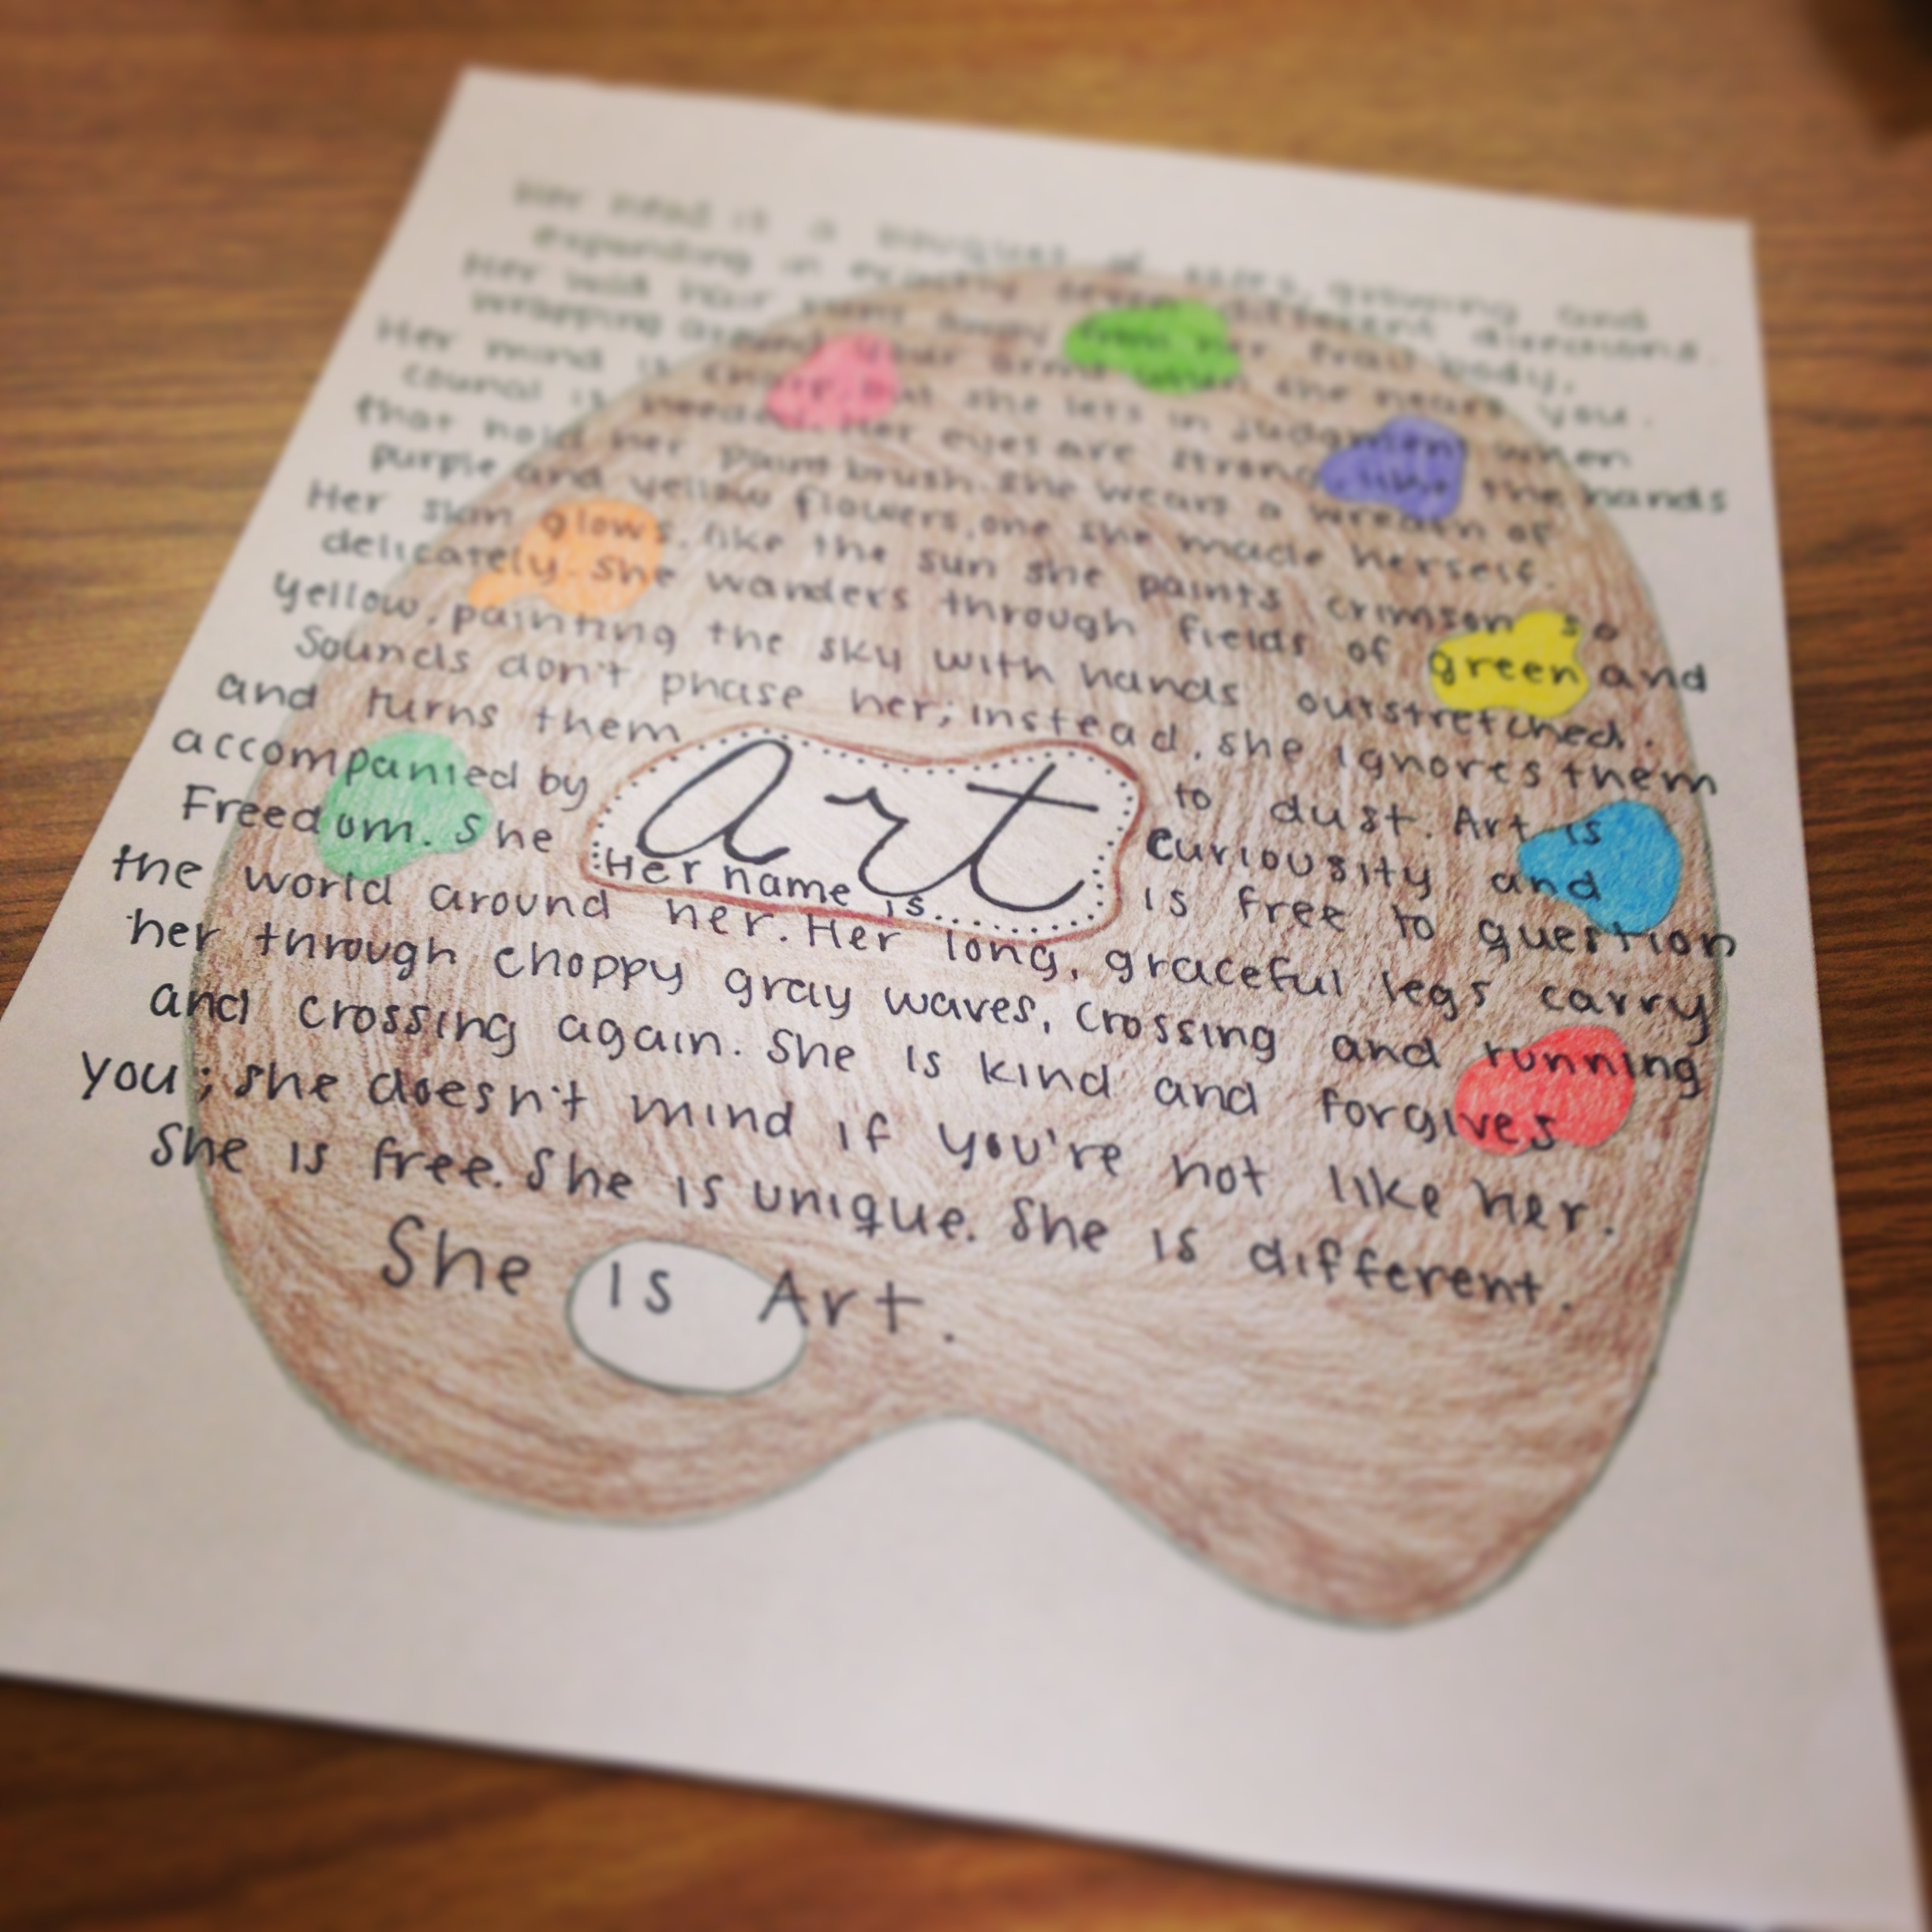 Her head is a bouquet of roses, growing and
expanding in exactly seven different directions.
Her wild hair away from her frail body,
wrapping around your arms when she nears you.
Her mind is but she lets in judgment when
council is needed. Her eyes are strong, like the hands
that hold her paint brush. She wears a wreath of
purple and yellow flowers, one she made herself.
Her skin glows, like the sun she paints crimson so
delicately. She wanders through fields of green and
yellow, painting the sky with hands outstretched.
Sounds don't phase her; instead, she ignores them
and turns them to dust. Art is
accompanied by curiousity and
Freedom. She is free to question
art
Her name is...
the world around her. Her long, graceful legs carry
her through choppy gray waves, crossing and running
and crossing again. She is kind and forgives
you; she doesn't mind if you're not like her.
She is free. She is unique. She is different.
She is Art.